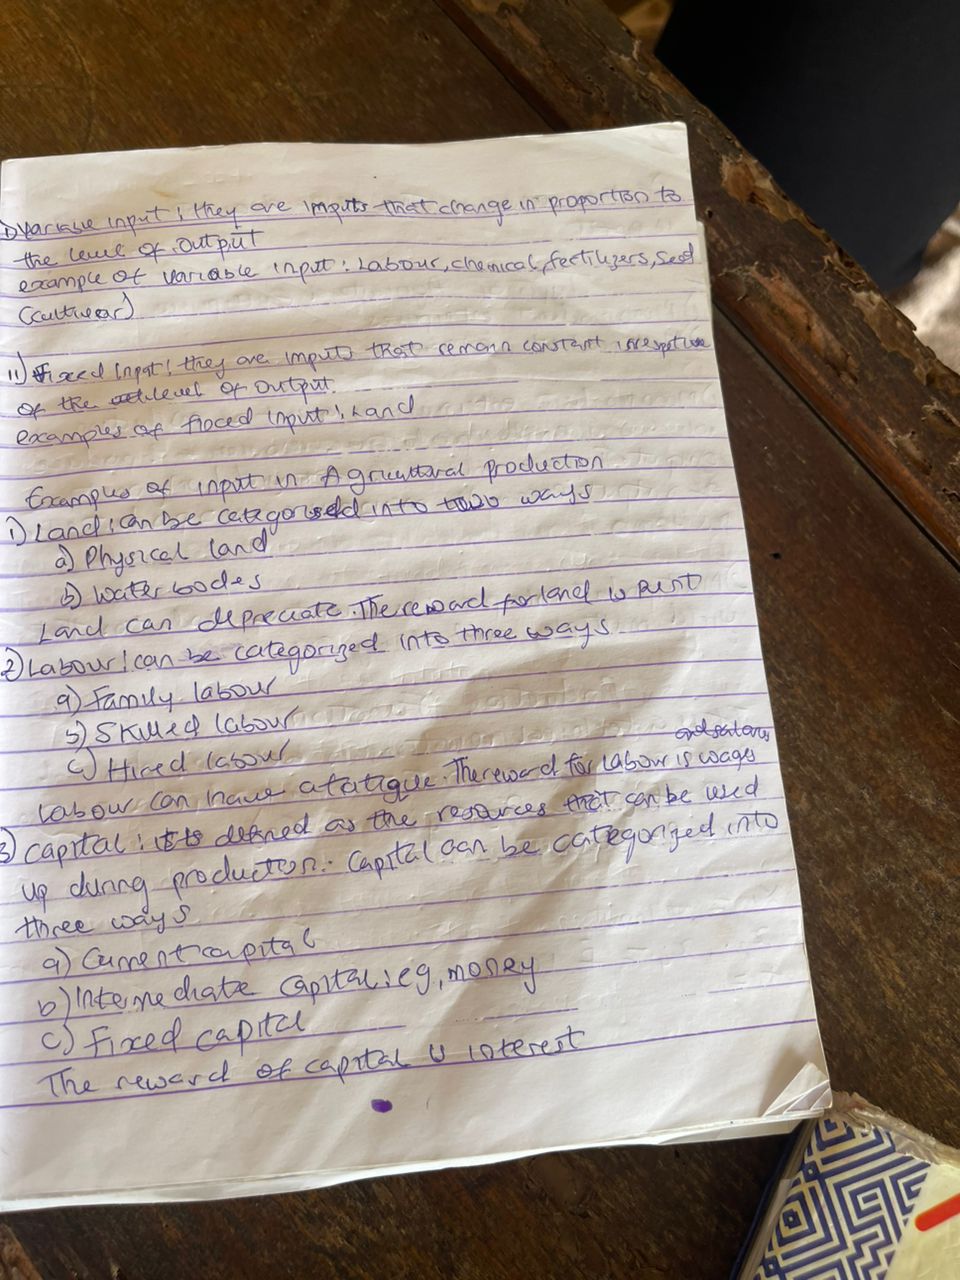 i) Variable input; they are inputs that change in proportion to
the level of output
example of variable input: Labour, chemical, fertilizers, seed
(cultivar)
ii) Fixed Input; they are inputs that remain constant irrespective
of the level of output.
examples of fixed input; Land
Examples of input in Agricultural production
1) Land; can be categorised into two ways
a) Physical land
b) Water bodes
Land can depreciate. The reward for land is Rent
2) Labour; can be categorized into three ways
a) Family labour
b) Skilled labour
c) Hired labour
and salary
Labour can have a fatigue. The reward for Labour is wages
3) capital; it is defined as the resources that can be used
up during production. Capital can be categorized into
three ways
a) Current capital
b) Intermediate capital; eg, money
c) Fixed capital
The reward of capital is interest